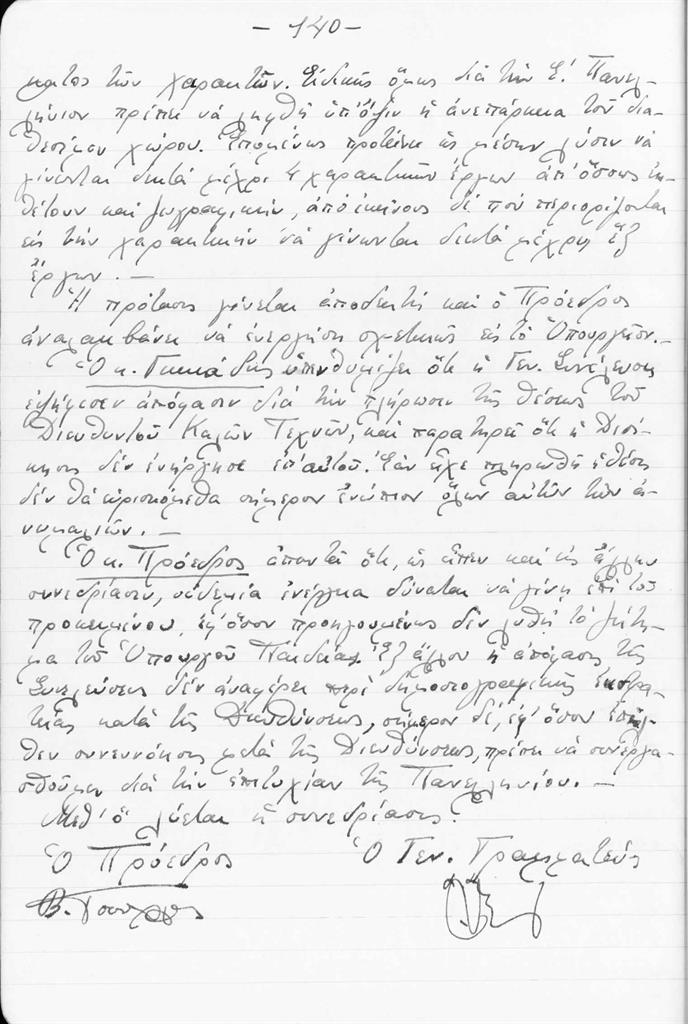 — 140 —
ματος τῶν χαρακτῶν. Εἰδικῶς ὅμως διὰ τὴν Ε΄. Πανελ-
λήνιον πρέπει νὰ ληφθῇ ὑπ' ὄψιν ἡ ἀνεπάρκεια τοῦ δια-
θεσίμου χώρου. Ἑπομένως προτείνει ὡς μέσην λύσιν νὰ
γίνωνται δεκτὰ μέχρι 4 χαρακτικῶν ἔργων ἀπ' ὅσους ἐκ-
θέτουν καὶ ζωγραφικήν, ἀπὸ ἐκείνους δὲ ποὺ περιορίζονται
εἰς τὴν χαρακτικὴν νὰ γίνωνται δεκτὰ μέχρις ἓξ
ἔργων. —
Ἡ πρότασις γίνεται ἀποδεκτὴ καὶ ὁ Πρόεδρος
ἀναλαμβάνει νὰ ἐνεργήσῃ σχετικῶς εἰς τὸ Ὑπουργεῖον. —
Ὁ κ. ὑπενθυμίζει ὅτι ἡ Γεν. Συνέλευσις
ἐψήφισεν ἀπόφασιν διὰ τὴν πλήρωσιν τῆς θέσεως τοῦ
Διευθυντοῦ Καλῶν Τεχνῶν, καὶ παρατηρεῖ ὅτι ἡ Διοί-
κησις δὲν ἐνήργησε ἐπ' αὐτοῦ. Ἐὰν εἶχε πληρωθῆ ἡ θέσις
δὲν θὰ εὑρισκόμεθα σήμερον ἐνώπιον ὅλων αὐτῶν τῶν ἀ-
νωμαλιῶν. —
Ὁ κ. Πρόεδρος ἀπαντᾷ ὅτι, ὡς εἶπεν καὶ εἰς ἄλλην
συνεδρίασιν, οὐδεμία ἐνέργεια δύναται νὰ γίνῃ ἐπὶ τοῦ
προκειμένου, ἐφ' ὅσον προηγουμένως δὲν λυθῇ τὸ ζήτη-
μα τοῦ Ὑπουργοῦ Παιδείας. Ἐξ ἄλλου ἡ ἀπόφασις τῆς
Συνελεύσεως δὲν ἀναφέρει περὶ δημοσιογραφικῆς ἐκστρα-
τείας κατὰ τῆς Διευθύνσεως, σήμερον δέ, ἐφ' ὅσον ἐπῆλ-
θεν συνεννόησις μετὰ τῆς Διευθύνσεως, πρέπει νὰ συνεργα-
σθοῦμε διὰ τὴν ἐπιτυχίαν τῆς Πανελληνίου. —
Μεθ' ὃ λύεται ἡ συνεδρίασις.
Ὁ Πρόεδρος Ὁ Γεν. Γραμματεύς
Β.